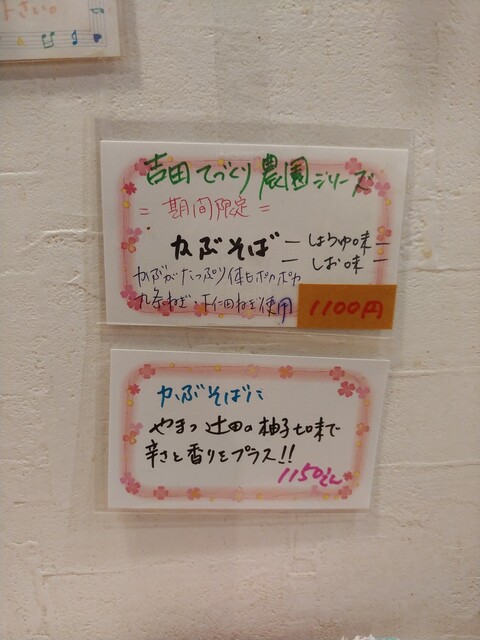 下さい。
吉田てづくり農園シリーズ
= 期間限定 =
かぶそば ー しょうゆ味 ー
ー しお味 ー
かぶがたっぷり体もポカポカ
九条ねぎ・下仁田ねぎ使用
1100円
かぶそばに
やまつ辻田の柚子七味で
辛さと香りをプラス!!
1150えん